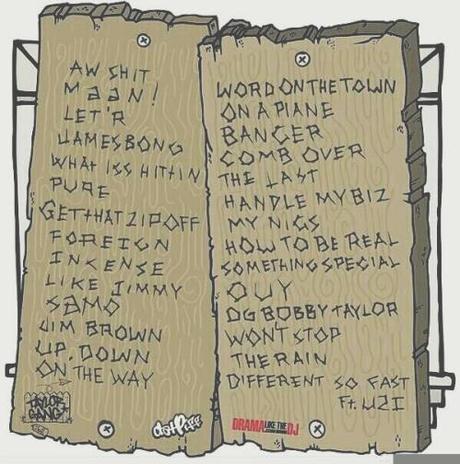 AW SHIT
MAAN!
LET'R
JAMES BONG
WHAT ISS HITTIN
PURE
GETTHAT ZIPOFF
FOREIGN
INCENSE
LIKE JIMMY
SAMO
JIM BROWN
UP, DOWN
ON THE WAY
TAYLOR
GANG
datpiff
WORD ON THE TOWN
ON A PLANE
BANGER
COMB OVER
THE LAST
HANDLE MY BIZ
MY NIGS
HOW TO BE REAL
SOMETHING SPECIAL
OUY
OG BOBBY TAYLOR
WON'T STOP
THE RAIN
DIFFERENT SO FAST
Ft. UZI
DRAMA LIKE THE DJ